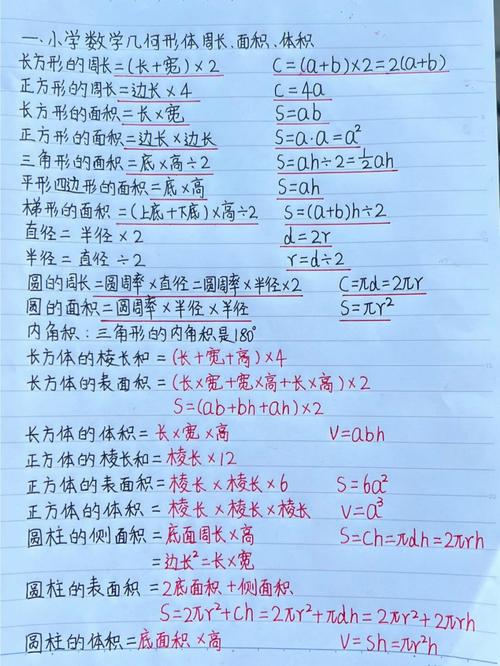 一.小学数学几何形体周长、面积、体积
长方形的周长=(长+宽)×2 C=(a+b)×2=2(a+b)
正方形的周长=边长×4 C=4a
长方形的面积=长×宽 S=ab
正方形的面积=边长×边长 S=a·a=a²
三角形的面积=底×高÷2 S=ah÷2=½ah
平形四边形的面积=底×高 S=ah
梯形的面积=(上底+下底)×高÷2 S=(a+b)h÷2
直径=半径×2 d=2r
半径=直径÷2 r=d÷2
圆的周长=圆周率×直径=圆周率×半径×2 C=πd=2πr
圆的面积=圆周率×半径×半径 S=πr²
内角积:三角形的内角积是180°
长方体的棱长和=(长+宽+高)×4
长方体的表面积=(长×宽+宽×高+长×高)×2
S=(ab+bh+ah)×2
长方体的体积=长×宽×高 V=abh
正方体的棱长和=棱长×12
正方体的表面积=棱长×棱长×6 S=6a²
正方体的体积=棱长×棱长×棱长 V=a³
圆柱的侧面积=底面周长×高 S=Ch=πdh=2πrh
=边长²=长×宽
圆柱的表面积=2底面积+侧面积
S=2πr²+Ch=2πr²+πdh=2πr²+2πrh
圆柱的体积=底面积×高 V=Sh=πr²h